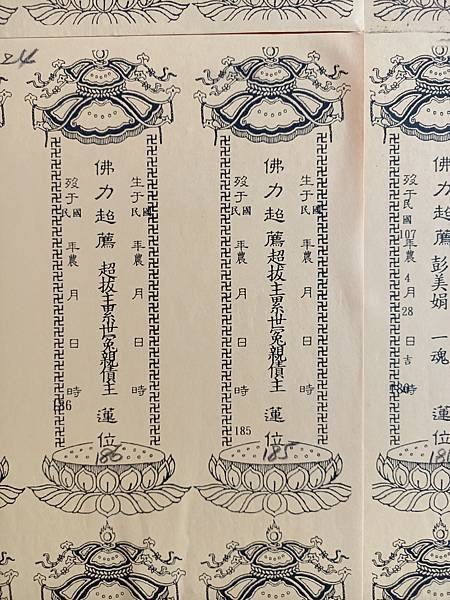 24
佛力超薦 彭美娟 一魂 蓮位
歿于民國107年農4月28日吉時
生于民國 年農 月 日 時
佛力超薦 超拔主累世冤親債主 蓮位
歿于民國 年農 月 日 時
185
185
佛力超薦 超拔主累世冤親債主 蓮位
歿于民國 年農 月 日 時
186
186